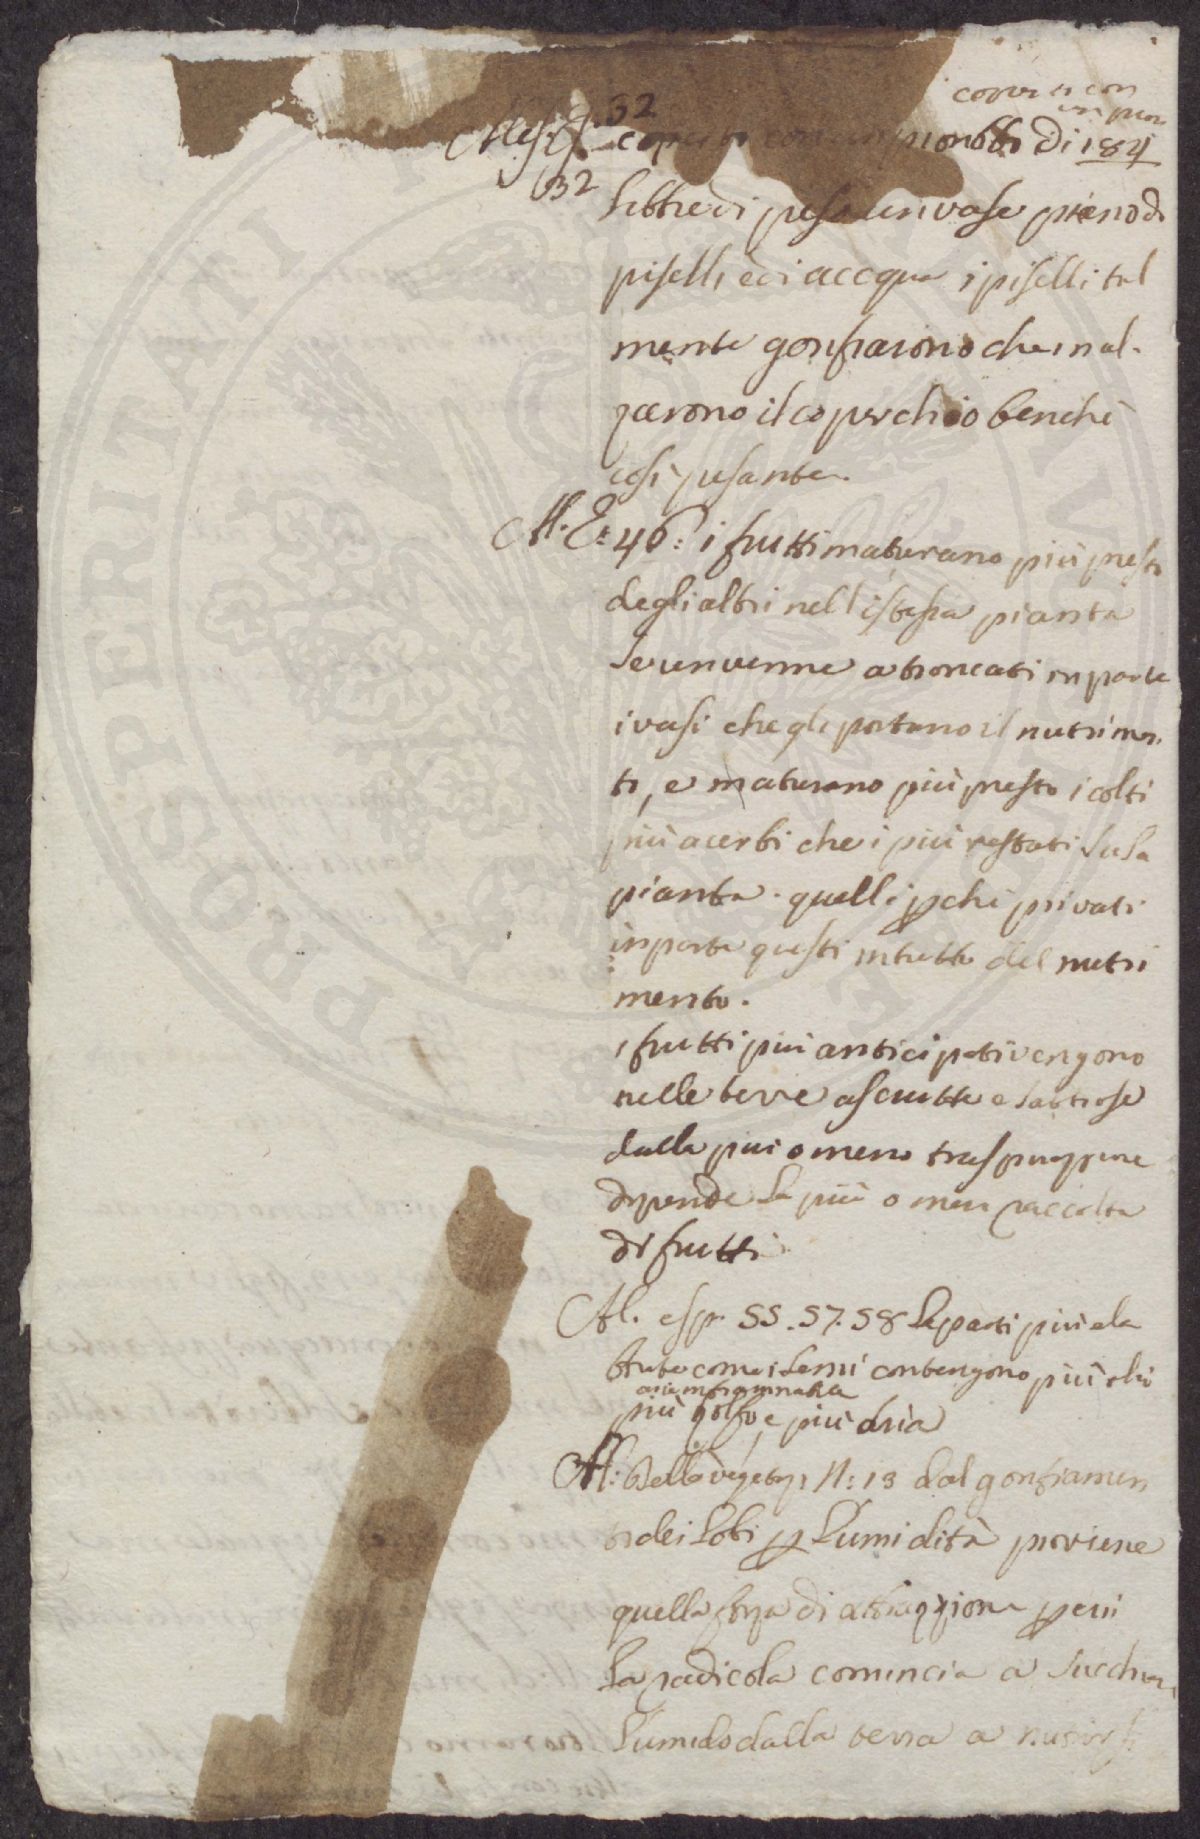 coperto con
un pion
Al. esp. 32 coperto con un piombo di 184
32
libbre di peso un vase pieno di
piselli e di accqua i piselli tal
mente gonfiarono che inal-
zarono il coperchio benchè
così pesante.
Al. E: 46: i frutti maturano più presto
degli altri nell istessa pianta
se venuenne a troncati in parte
i vasi che gli portano il nutrimen.
to, e maturano più presto i colti
più acerbi che i più restati su la
pianta. quelli pchè privati
in parte questi in tutto del nutri
mento.
i frutti più anticipati vengono
nelle terre asciutte e sabriose
dalla più o meno traspirazione
dipende la più o men raccolta
di frutti
Al. esp. 55. 57. 58 Le parti più ela
btrate come i semi contengono più olio
aria infiammabile
più solfo, e più d'aria
Al: Della vegetaz. N: 13 dal gonfiamen
to dei Lobi p L'umidità proviene
quella forza di attrazzione p cui
la radicola comincia a succhiare
L'umido dalla terra a nutrirsi